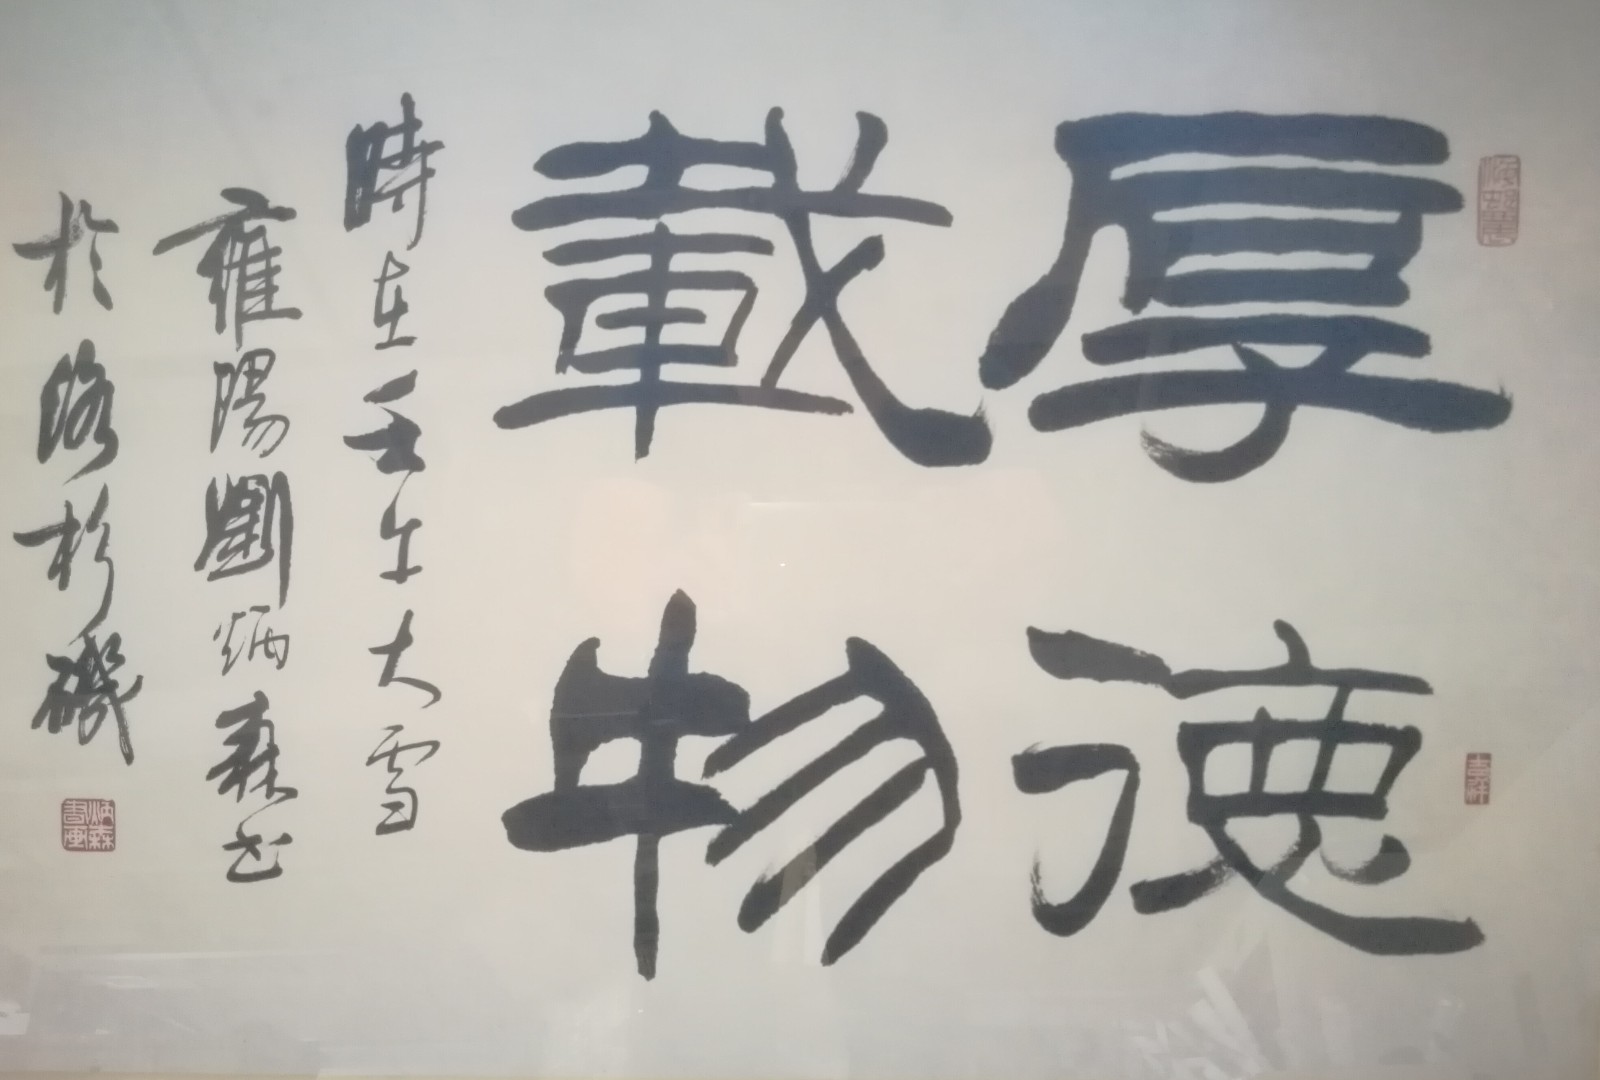 厚德
載物
時在壬午大雪
雍陽劉炳森書
於洛杉磯
吉祥
炳森書畫